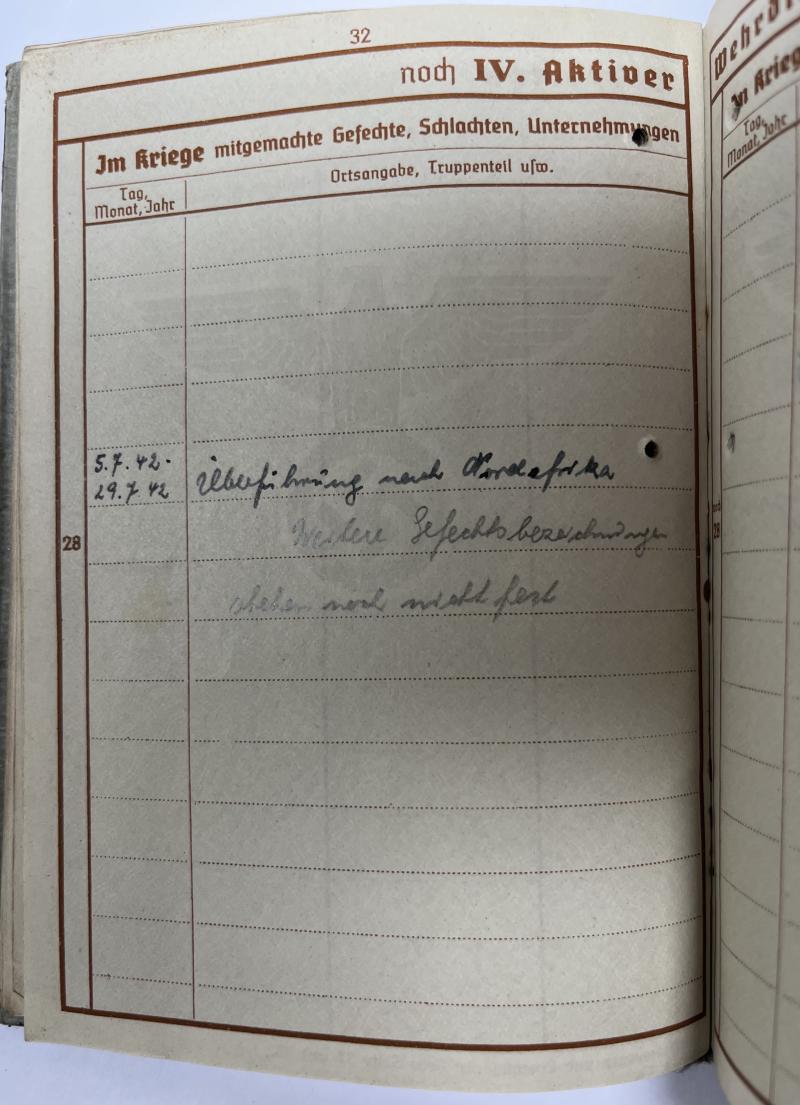 32
noch IV. Aktiver
Im Kriege mitgemachte Gefechte, Schlachten, Unternehmungen
Tag, Monat, Jahr
Ortsangabe, Truppenteil usw.
5.7.42-
29.7.42 Überführung nach Nordafrika
28
Weitere Gefechtsbezeichnungen
stehen noch nicht fest
Im Kriege
Tag,
Monat, Jahr
noch
28